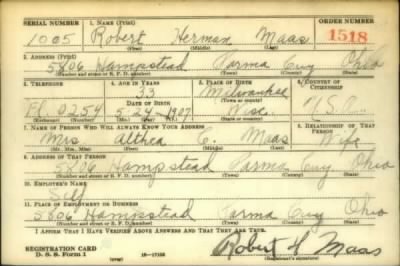 SERIAL NUMBER 1. NAME (Print) ORDER NUMBER
1005 Robert Herman Maas 1518
(First) (Middle) (Last)
2. ADDRESS (Print)
5806 Hampstead Parma Cuy Ohio
(Number and street or R. F. D. number) (Town) (County) (State)
3. TELEPHONE 4. AGE IN YEARS 5. PLACE OF BIRTH 6. COUNTRY OF CITIZENSHIP
33 Milwaukee
DATE OF BIRTH (Town or county)
FL 0254 5-24-1907 Wisc. U.S.A.
(Exchange) (Number) (Mo.) (Day) (Yr.) (State or country)
7. NAME OF PERSON WHO WILL ALWAYS KNOW YOUR ADDRESS 8. RELATIONSHIP OF THAT PERSON
Mrs Althea C. Maas Wife
(Mr., Mrs., Miss) (First) (Middle) (Last)
9. ADDRESS OF THAT PERSON
5806 Hampstead Parma Cuy Ohio
(Number and street or R. F. D. number) (Town) (County) (State)
10. EMPLOYER'S NAME
Self
11. PLACE OF EMPLOYMENT OR BUSINESS
5806 Hampstead Parma Cuy Ohio
(Number and street or R. F. D. number) (Town) (County) (State)
I AFFIRM THAT I HAVE VERIFIED ABOVE ANSWERS AND THAT THEY ARE TRUE.
REGISTRATION CARD
D. S. S. Form 1 (over) 16-17105 Robert H Maas
(Registrant's signature)